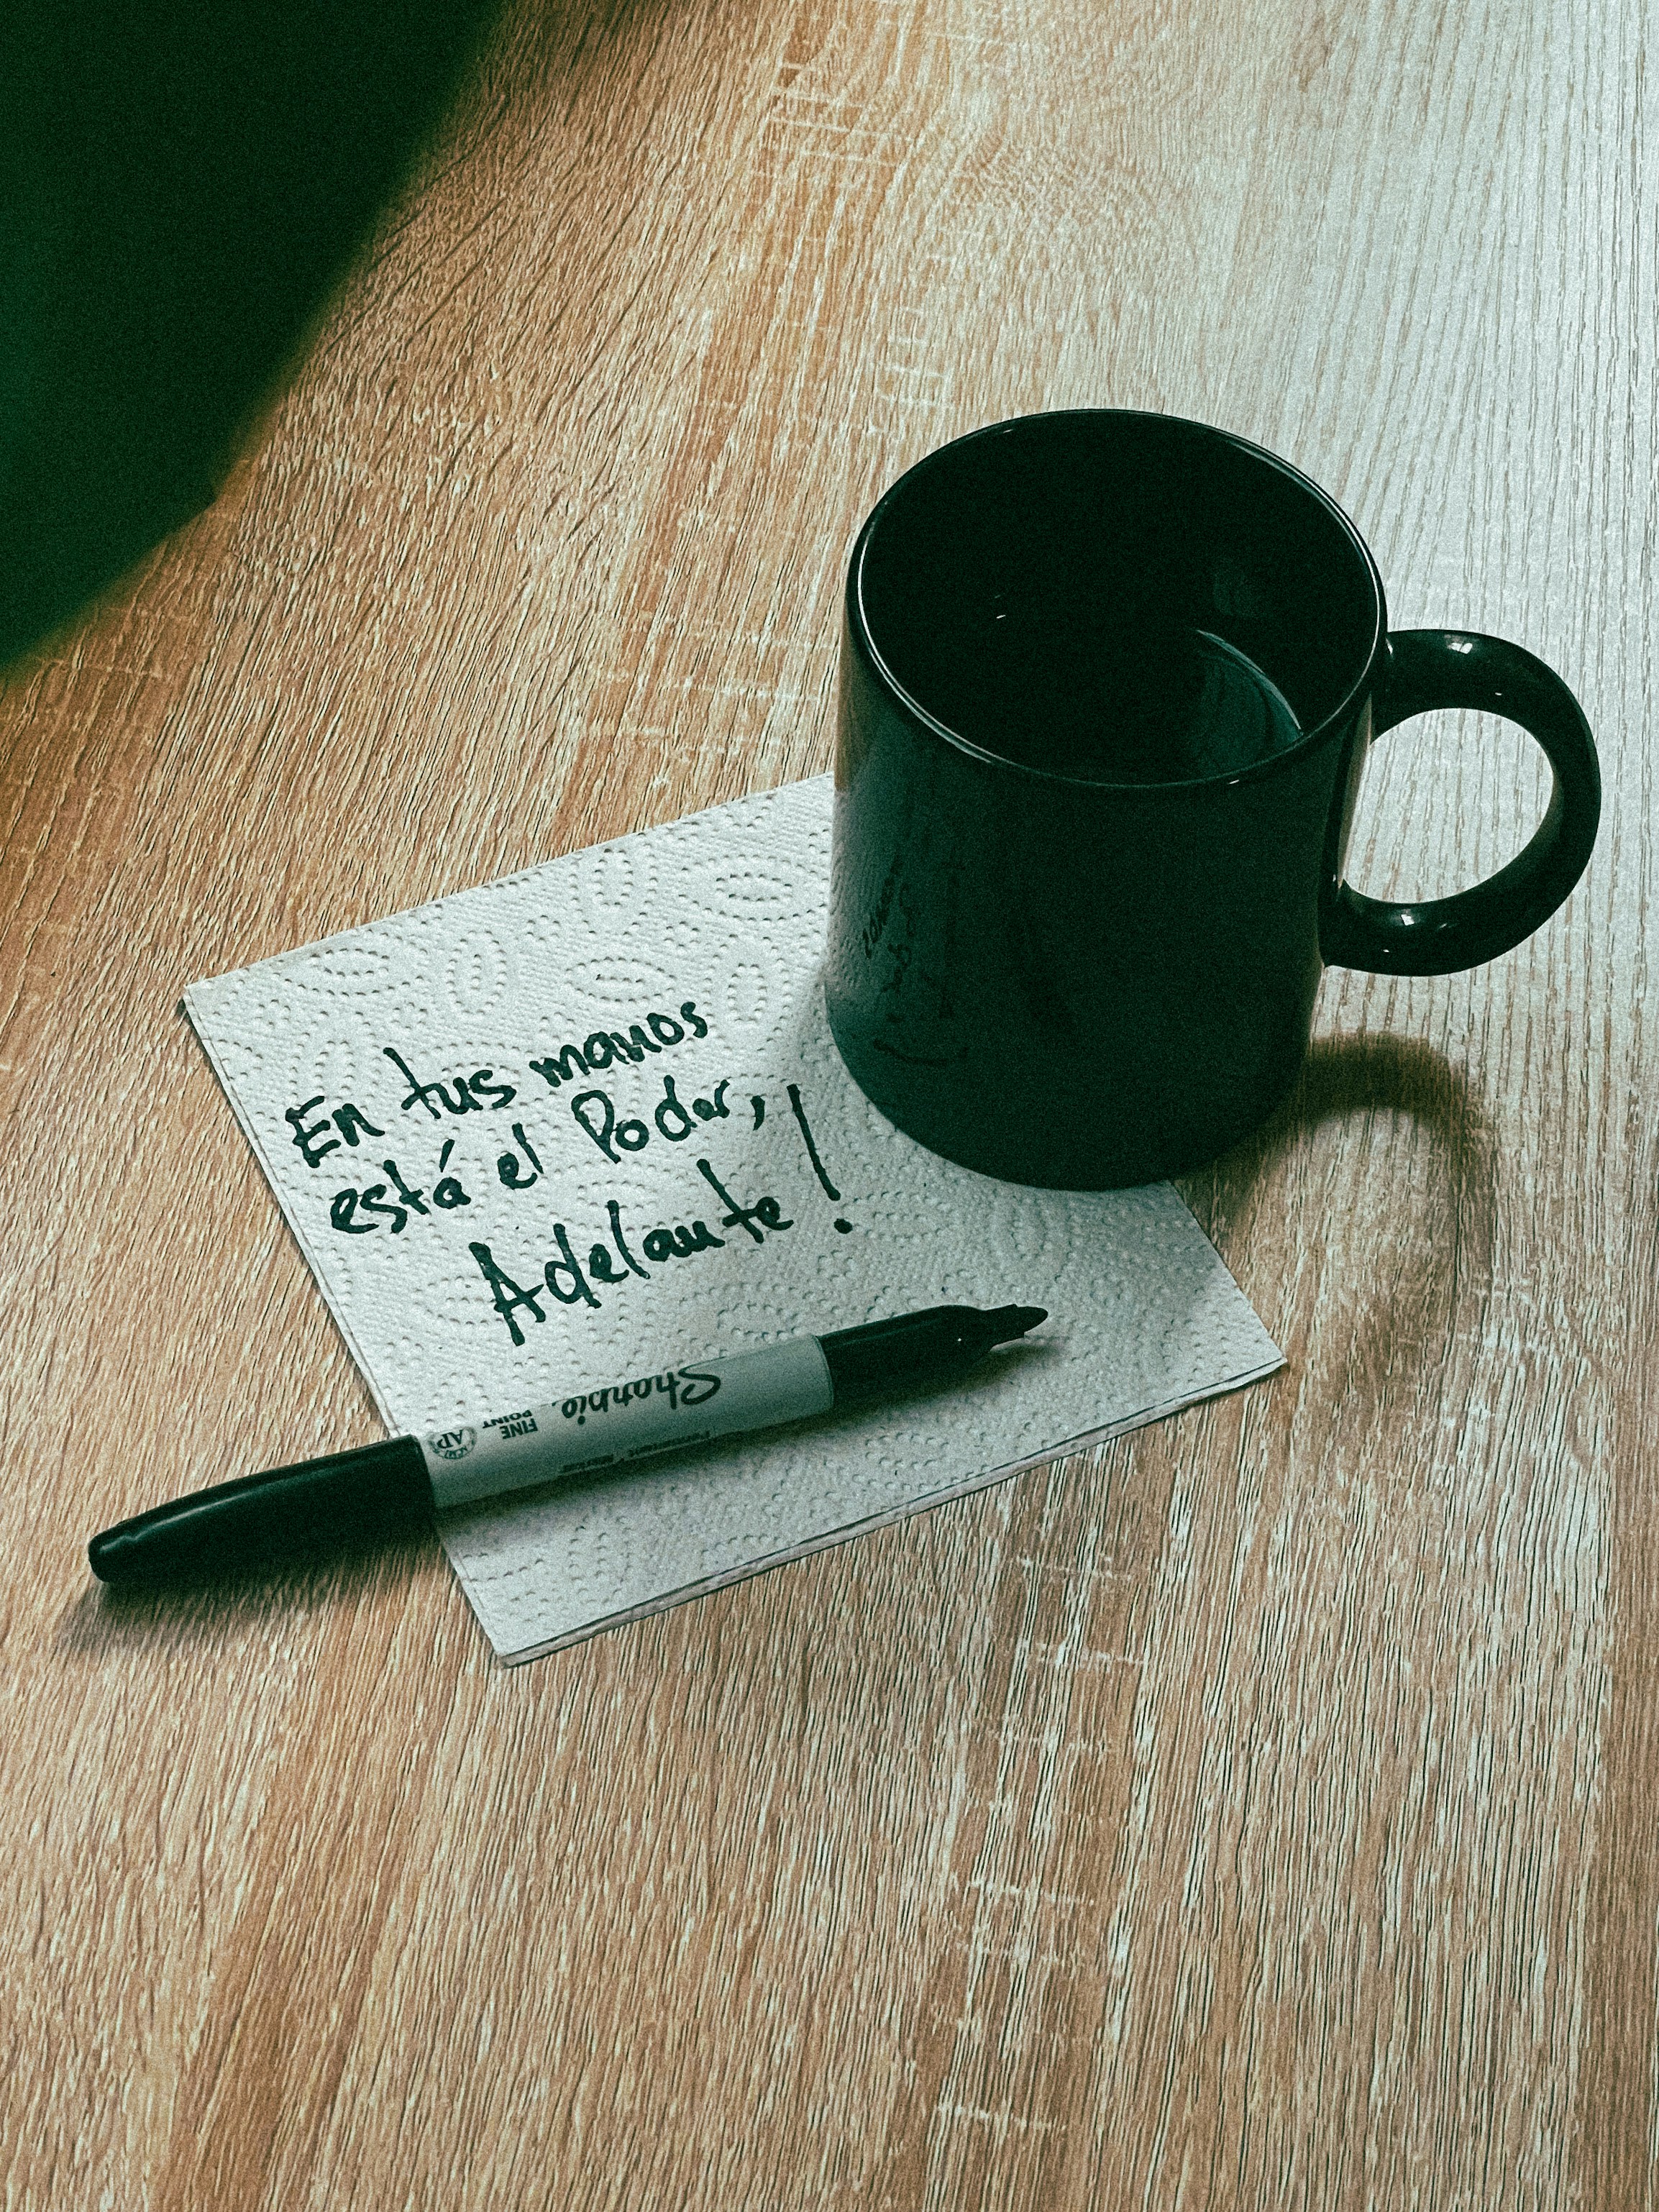 En tus manos
está el Poder,
Adelante!
Sharpie
FINE
POINT
Permanent Marker
AP